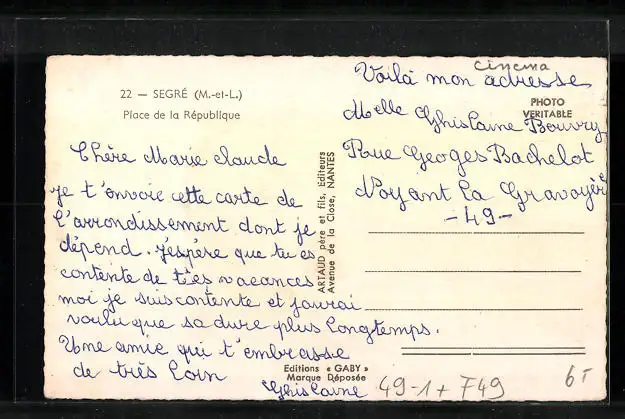 cinema
Voilà mon adresse
22 — SEGRÉ (M.-et-L.)
Place de la République
PHOTO
VERITABLE
Melle Ghislaine Bouvry
Rue Georges Bachelot
Noyant La Gravoyère
- 49 -
Chère Marie claude
je t'envoie cette carte de
l'arrondissement dont je
dépend. j'éspère que tu es
contente de tes vacances
moi je suis contente et j'aurai
voulu que sa dure plus longtemps.
Une amie qui t'embrasse
de très loin
Ghislaine
ARTAUD père et fils, Editeurs
Avenue de la Close, NANTES
Editions « GABY »
Marque Déposée
49-1 + F49
6F